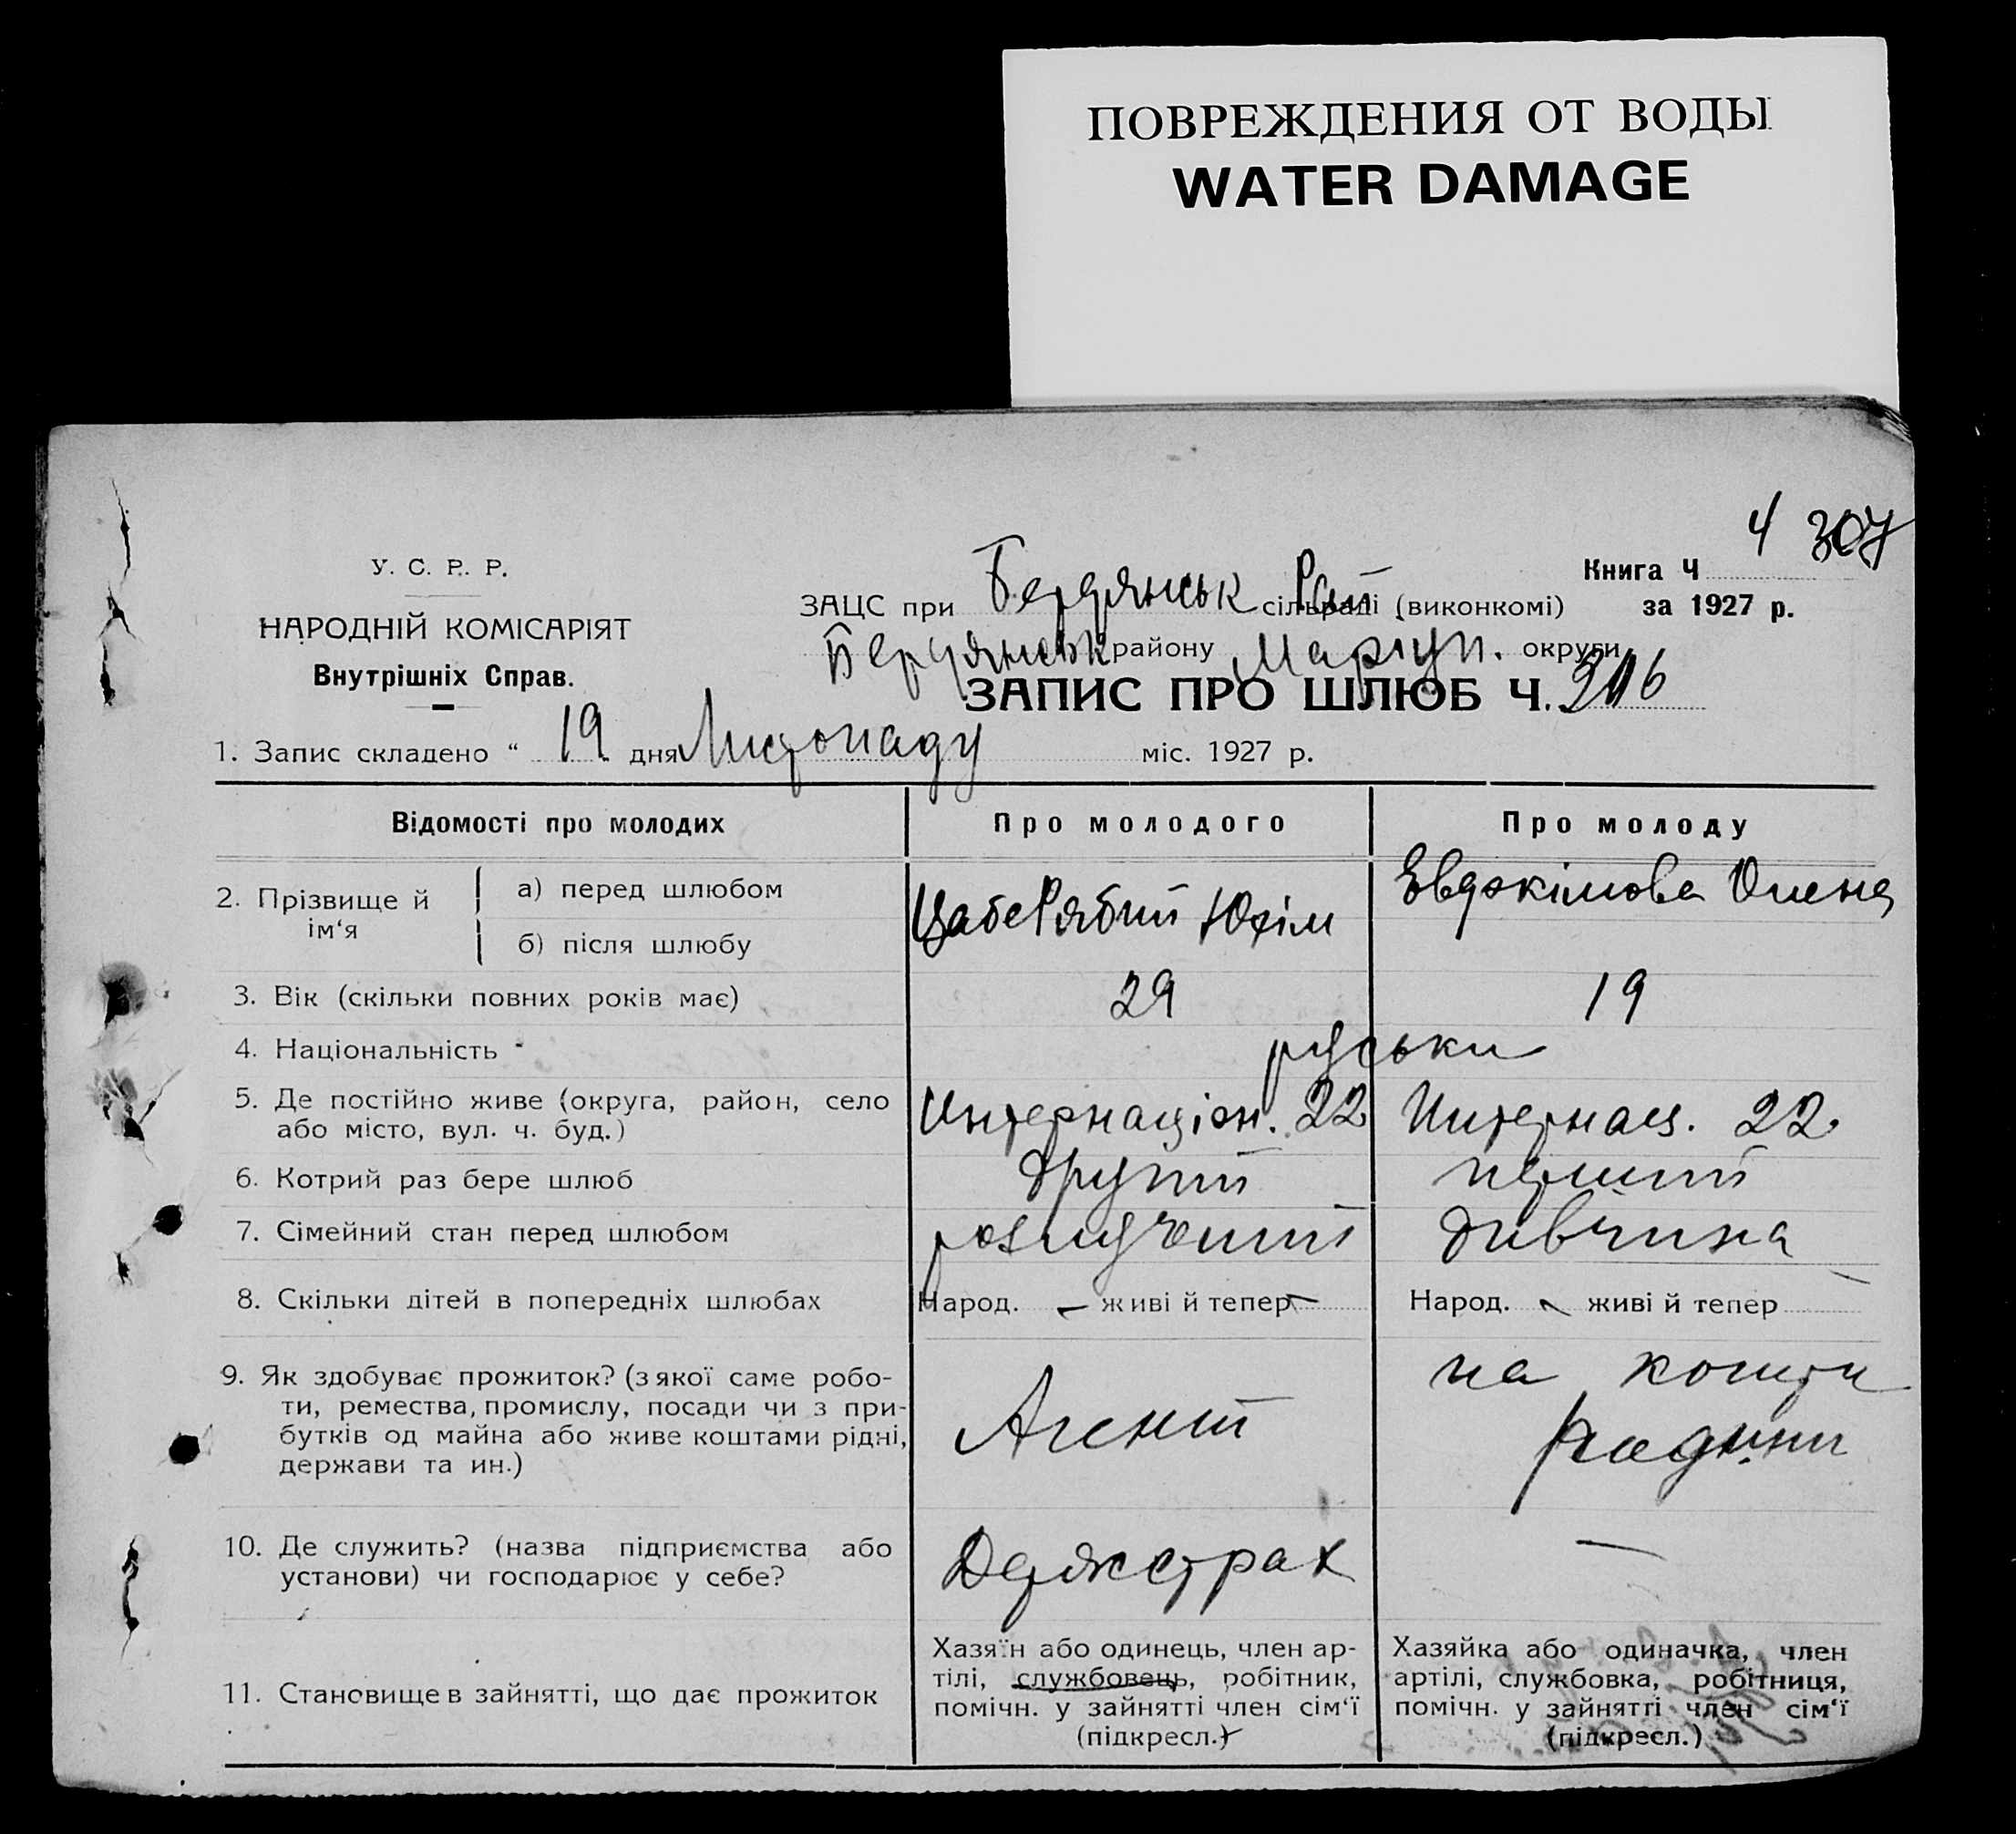 ПОВРЕЖДЕНИЯ ОТ ВОДЫ
WATER DAMAGE
4 307
У. С. Р. Р.
НАРОДНІЙ КОМІСАРІЯТ
Внутрішніх Справ.
Книга Ч
за 1927 р.
ЗАЦС при Бердянськ Рай сільраді (виконкомі)
Бердянськ району Маріуп. округи
ЗАПИС ПРО ШЛЮБ Ч.
1. Запис складено “ 19 дня Листопаду міс. 1927 р.
Відомості про молодих Про молодого Про молоду
2. Прізвище й ім‘я
а) перед шлюбом
б) після шлюбу
Цабе Рябий Юхім
Евдокімова Олена
3. Вік (скільки повних років має) 29 19
4. Національність руськи
5. Де постійно живе (округа, район, село
або місто, вул. ч. буд.)
Интернаціон. 22 Интернац. 22.
6. Котрий раз бере шлюб другий перший
7. Сімейний стан перед шлюбом розлучений дивчина
8. Скільки дітей в попередніх шлюбах Народ. — живі й тепер — Народ. — живі й тепер
9. Як здобуває прожиток? (з якої саме робо-
ти, ремества, промислу, посади чи з при-
бутків од майна або живе коштами рідні,
держави та ин.)
Агент
на кошти
родини
10. Де служить? (назва підприємства або
установи) чи господарює у себе?
Держстрах —
11. Становище в зайнятті, що дає прожиток
Хазяїн або одинець, член ар-
тілі, службовець, робітник,
помічн. у зайнятті член сім‘ї
(підкресл.)
Хазяйка або одиначка, член
артілі, службовка, робітниця,
помічн. у зайнятті член сім‘ї
(підкресл.)